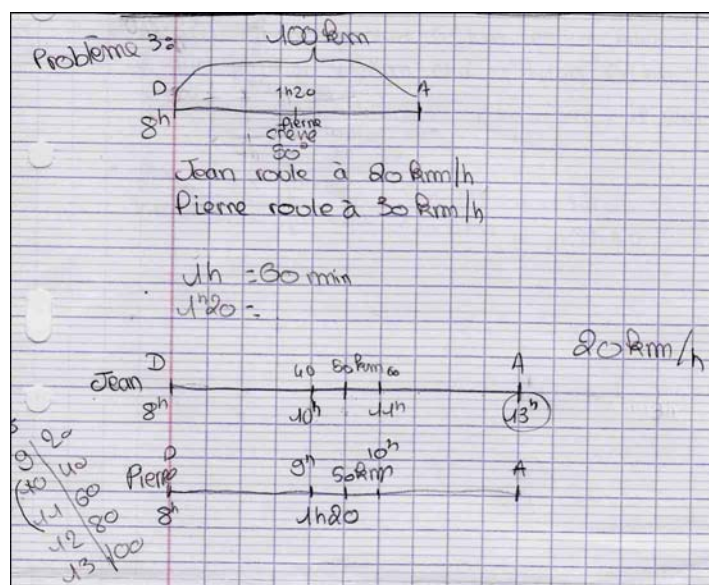 Problème 3:
100 km
D 1h20 A
8h Pierre
crève
50°
Jean roule à 20 km/h
Pierre roule à 30 km/h
1h = 60 min
1h20 =
20 km/h
D 40 50km 60 A
Jean
8h 10h 11h 13h
D 9h 50km 10h A
Pierre
8h 1h20
8 20
9 40
10 60
11 80
12 100
13